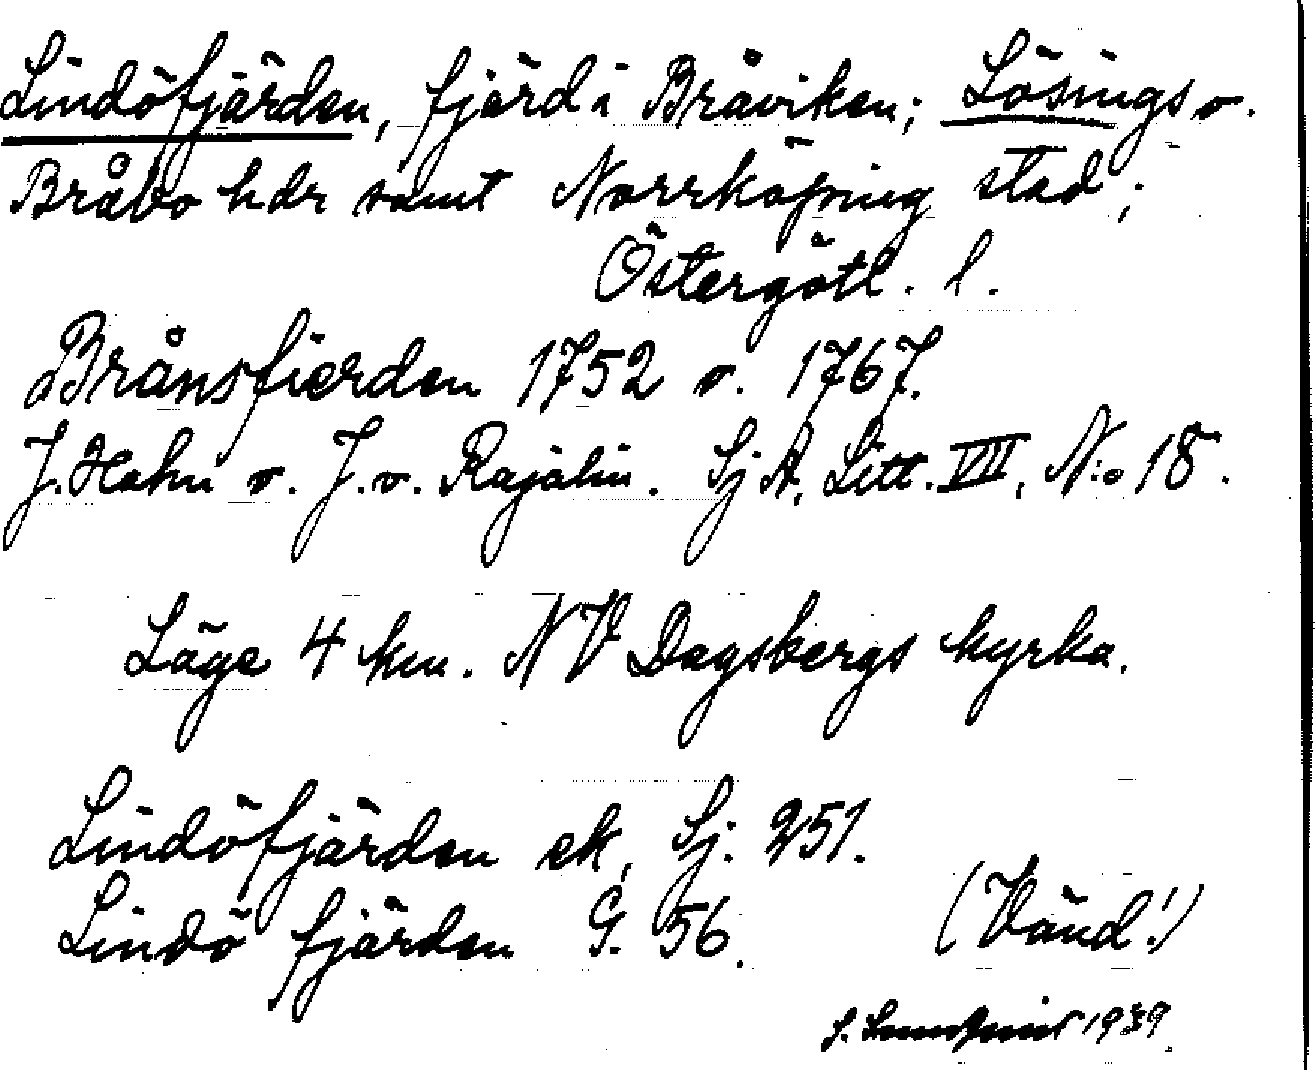 Lindöfjärden, fjärd i Bråviken; Lösings o.
Bråbo hdr samt Norrköping stad;
Östergötl. l.
Brånsfierden 1752 o. 1767.
J. Hahn o. J. v. Rajalin. Sj A. Litt. VIII, N:o 18.
Läge 4 km. NV Dagsbergs kyrka.
Lindöfjärden ek, Sj. 251.
Lindö fjärden G. 56.
(Vänd!)
1939